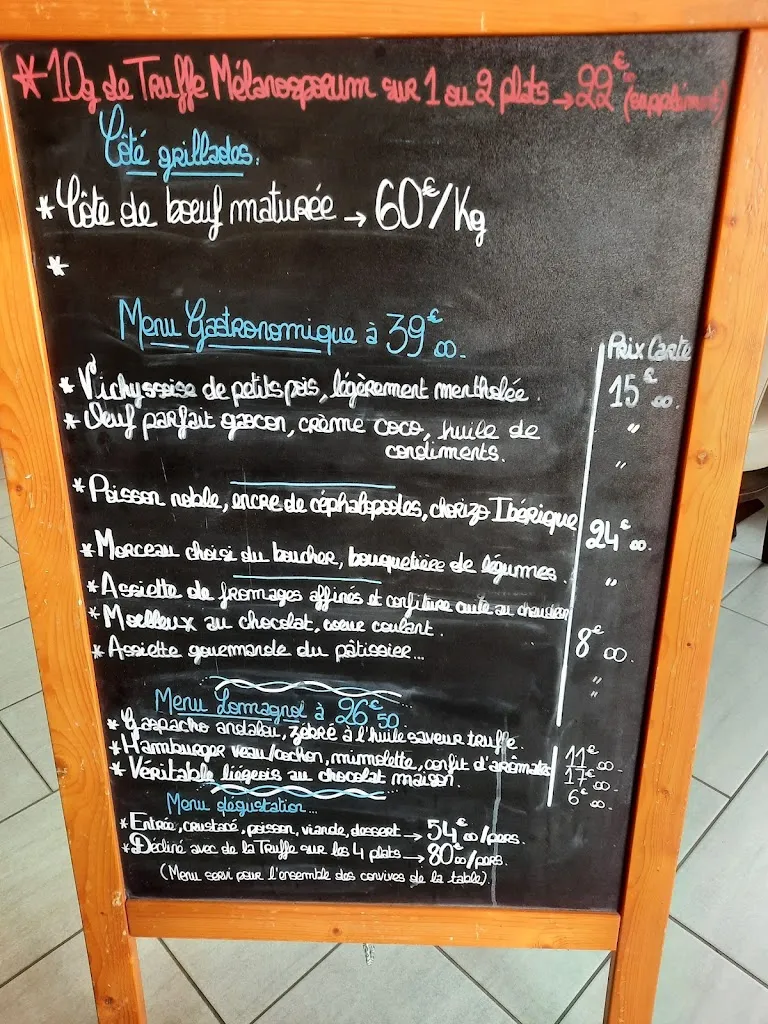 * 10g de Truffe Mélanosporum sur 1 ou 2 plats → 22€00 (supplément)
Côté grillades.
* Côte de bœuf maturée → 60€/Kg
*
Menu Gastronomique à 39€00.
Prix Carte
* Vichyssoise de petits pois, légèrement mentholée. 15€00.
* Oeuf parfait gascon, crème coco, huile de "
condiments. "
* Poisson noble, encre de céphalopodes, chorizo Ibérique 24€00.
* Morceau choisi du boucher, bouquetière de légumes. "
* Assiette de fromages affinés et confiture cuite au chaudron 8€00.
* Moelleux au chocolat, coeur coulant. "
* Assiette gourmande du pâtissier... "
Menu Lomagnol à 26€50.
* Gaspacho andalou, zébré à l'huile saveur truffe. 11€00.
* Hamburger veau/cochon, mimolette, confit d'arômates 17€00.
* Véritable liégeois au chocolat maison. 6€00.
Menu dégustation...
* Entrée, crustacé, poisson, viande, dessert → 54€00/pers.
* Décliné avec de la Truffe sur les 4 plats → 80€00/pers.
(Menu servi pour l'ensemble des convives de la table).